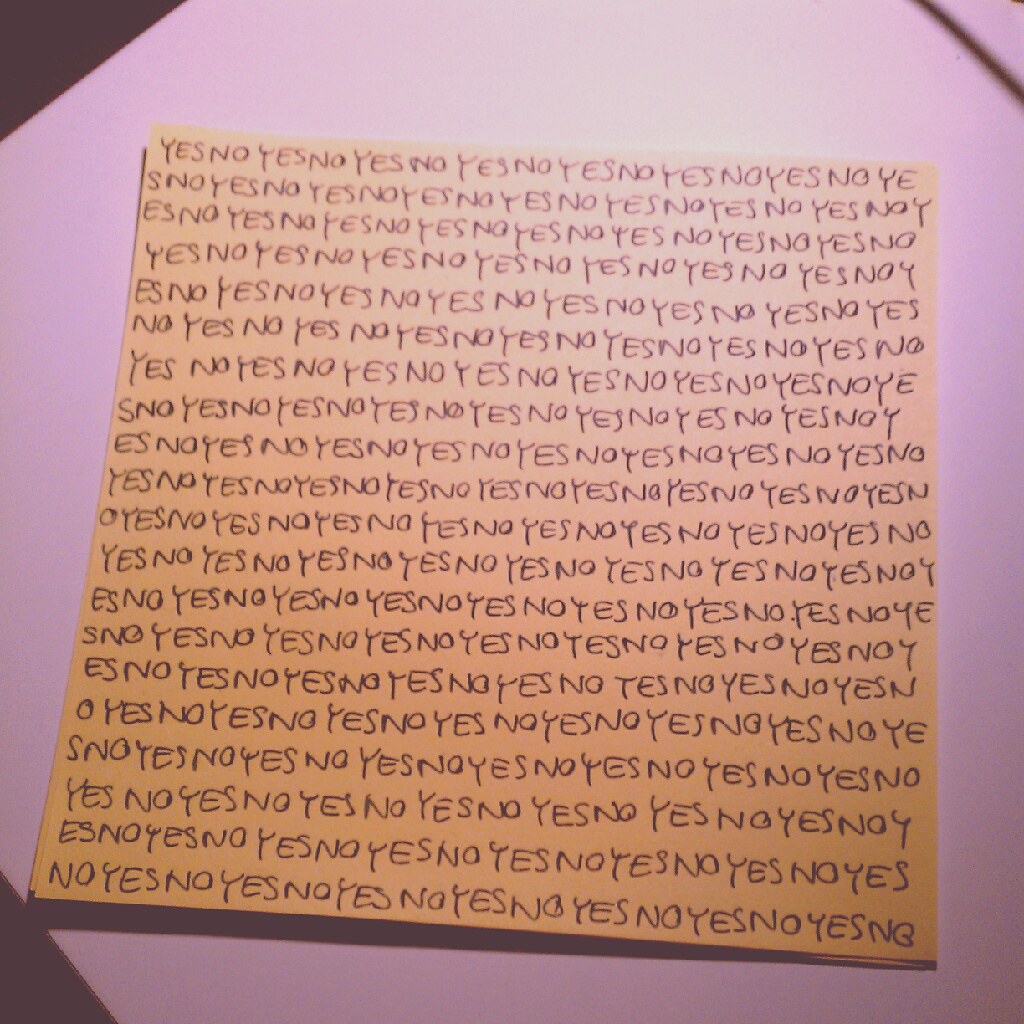 YESNO YESNO YES NO YESNO YESNO YESNOYES NO YE
SNOYESNO YESNOYESNOYESNO YESNOYES NO YES NOY
ESNO YESNOYESNOYESNOYESNOYES NOYESNOYESNO
YESNOYESNO YESNO YESNO YESNOYES NO YES NOY
ESNO YESNOYES NOYES NO YES NOYESNO YESNO YES
NO YES NO YES NOYESNOYESNO YESNOYES NOYES NO
YES NOYESNO YESNO YES NO YESNOYESNOYESNOYE
SNO YESNOYESNOYES NOYES NO YESNOYES NO YESNOY
ESNOYES NO YESNOYES NOYES NOYESNOYES NO YESNO
YESNOYESNOYESNOYESNO YESNOYESNOYESNO YES NOYESN
OYESNOYES NOYES NO YESNOYES NOYES NO YESNOYES NO
YESNO YESNOYES NOYES NO YESNO YESNO YES NOYESNOY
ESNO YESNOYESNOYESNOYESNOYES NOYES NO.YESNOYE
SNO YESNO YESNOYESNOYESNOYESNO YESNO YESNOY
ESNO YESNOYESNOYESNOYESNO YESNOYESNOYESN
O YESNOYESNO YESNOYES NOYESNOYES NOYESNOYE
SNOYESNOYES NO YESNOYESNOYESNO YESNOYESNO
YES NOYESNO YESNO YESNO YESNO YES NOYESNOY
ESNOYESNO YESNOYESNOYESNOYESNOYES NOYES
NOYESNOYESNOYES NOYESNOYES NOYESNOYESNO